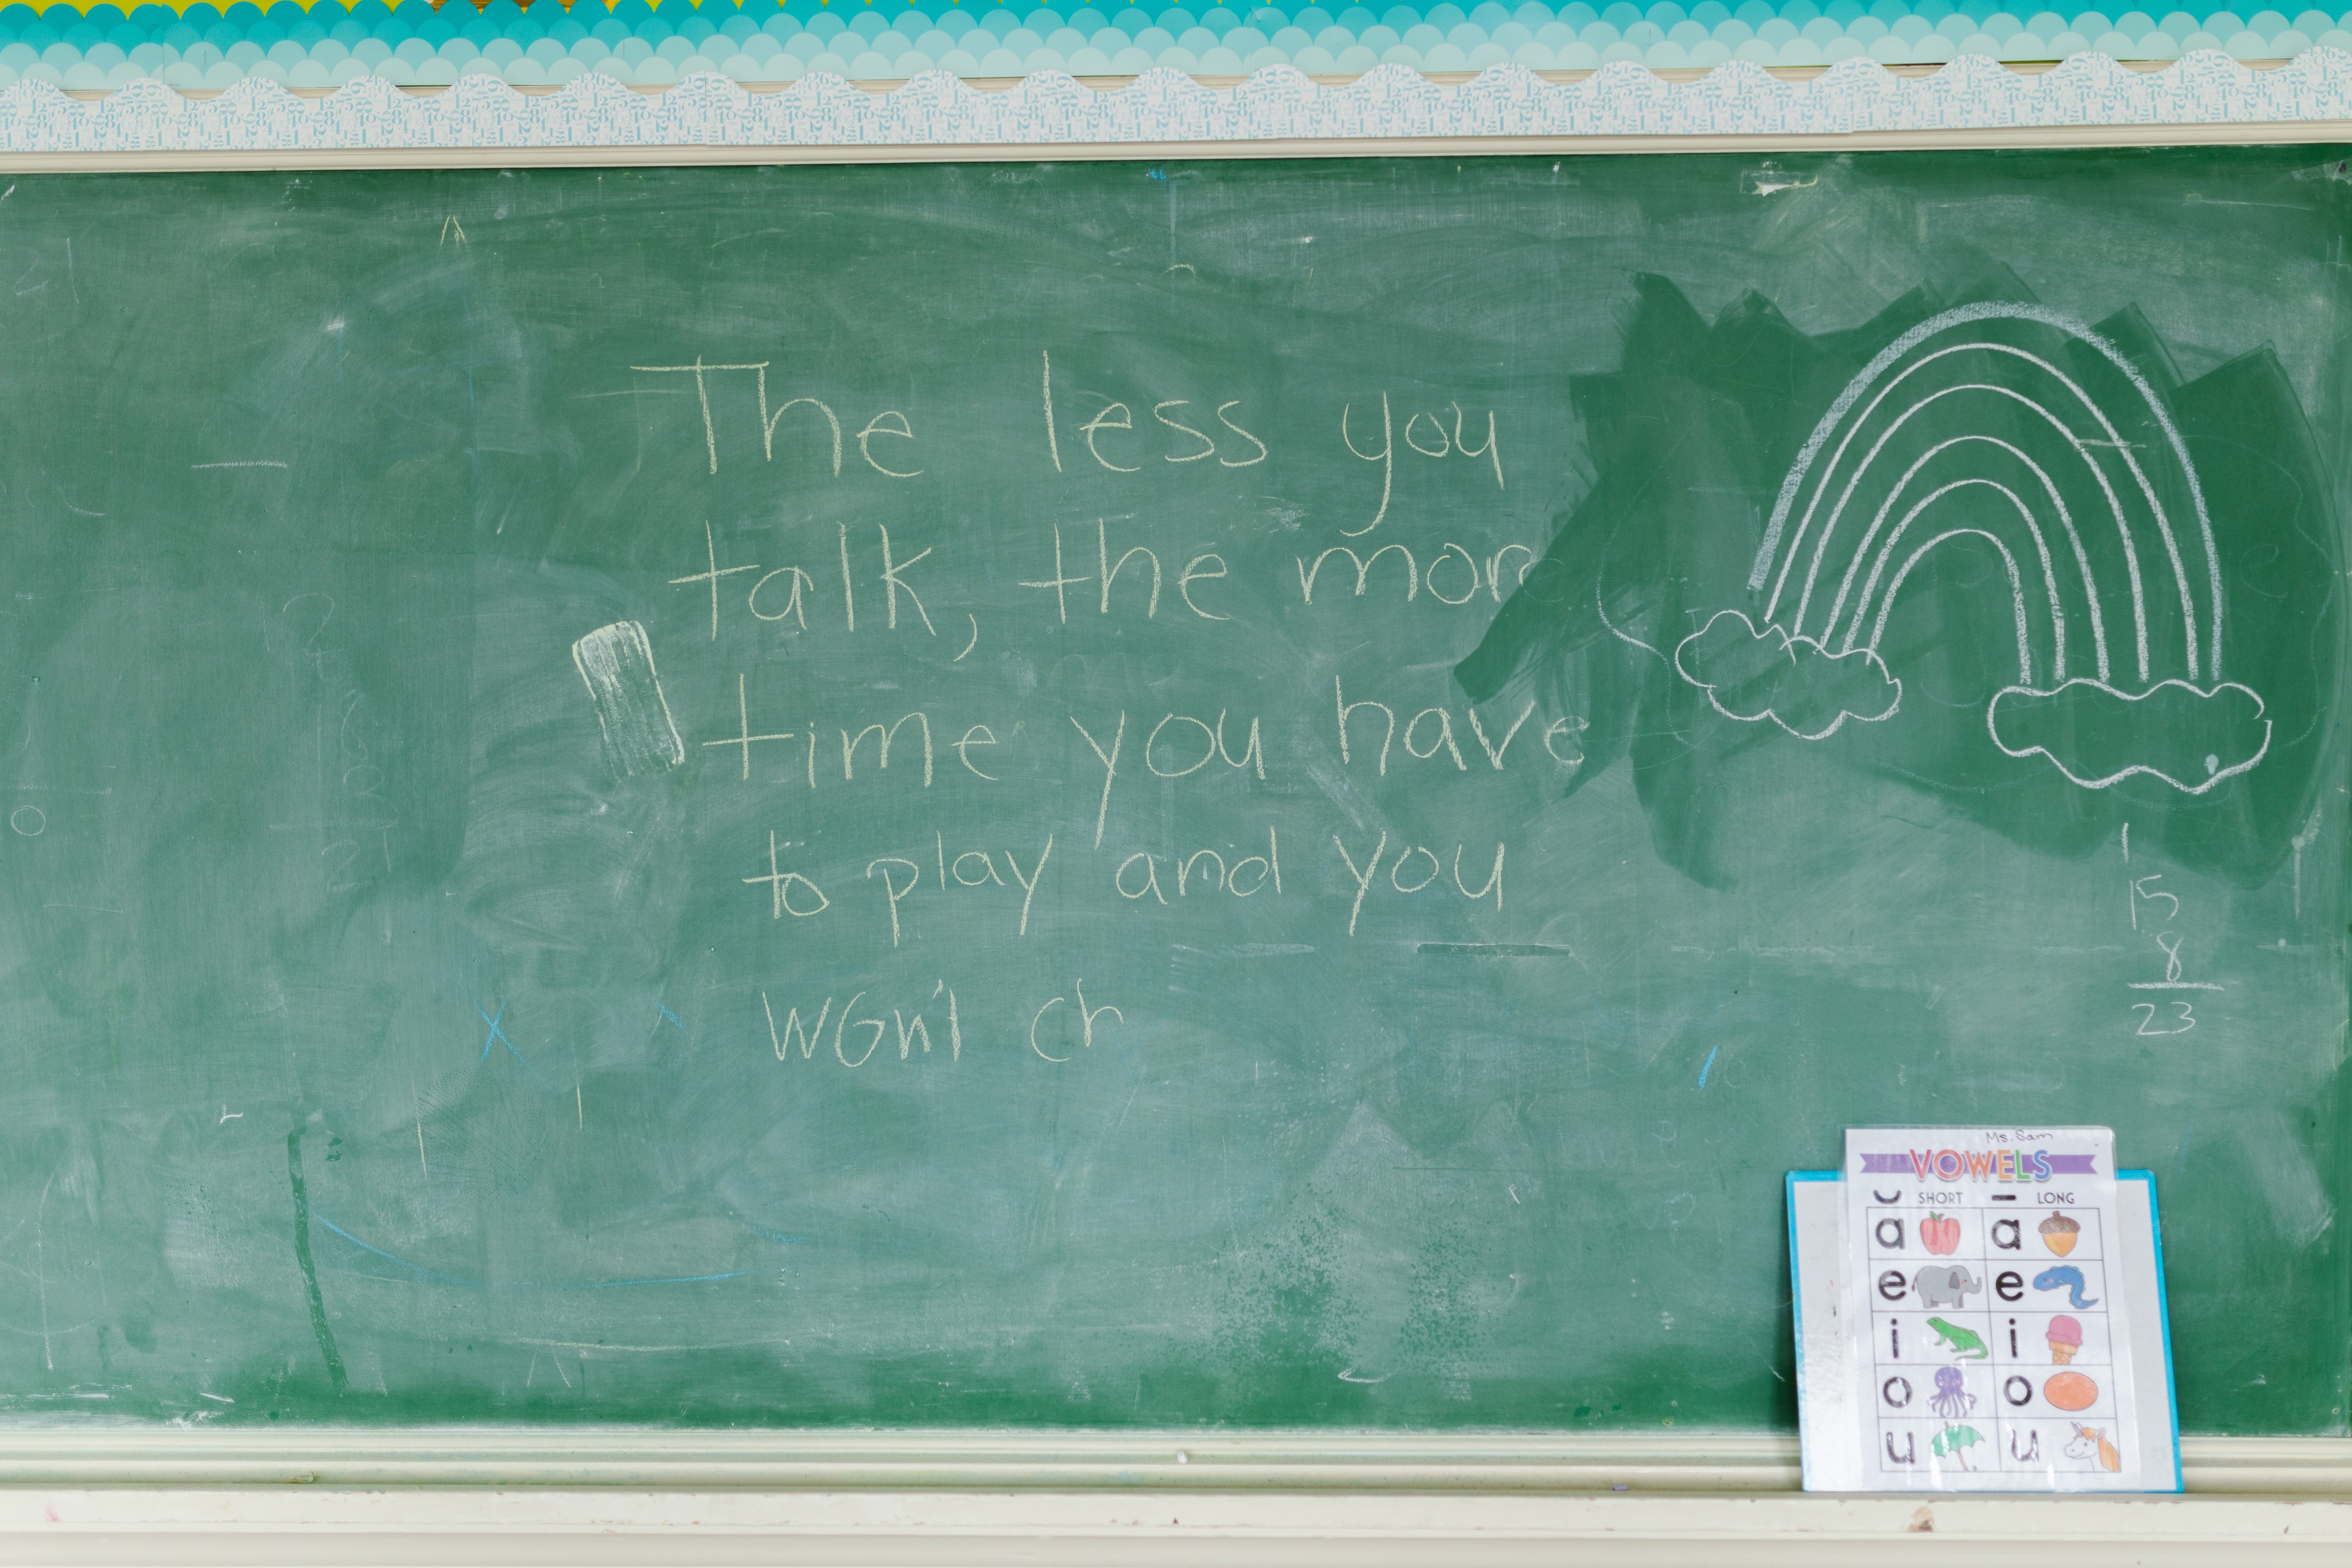 The less you
talk, the more
time you have
to play and you
won't ch
1
15
8
23
Ms. Sam
VOWELS
SHORT LONG
a a
e e
i i
o o
u u